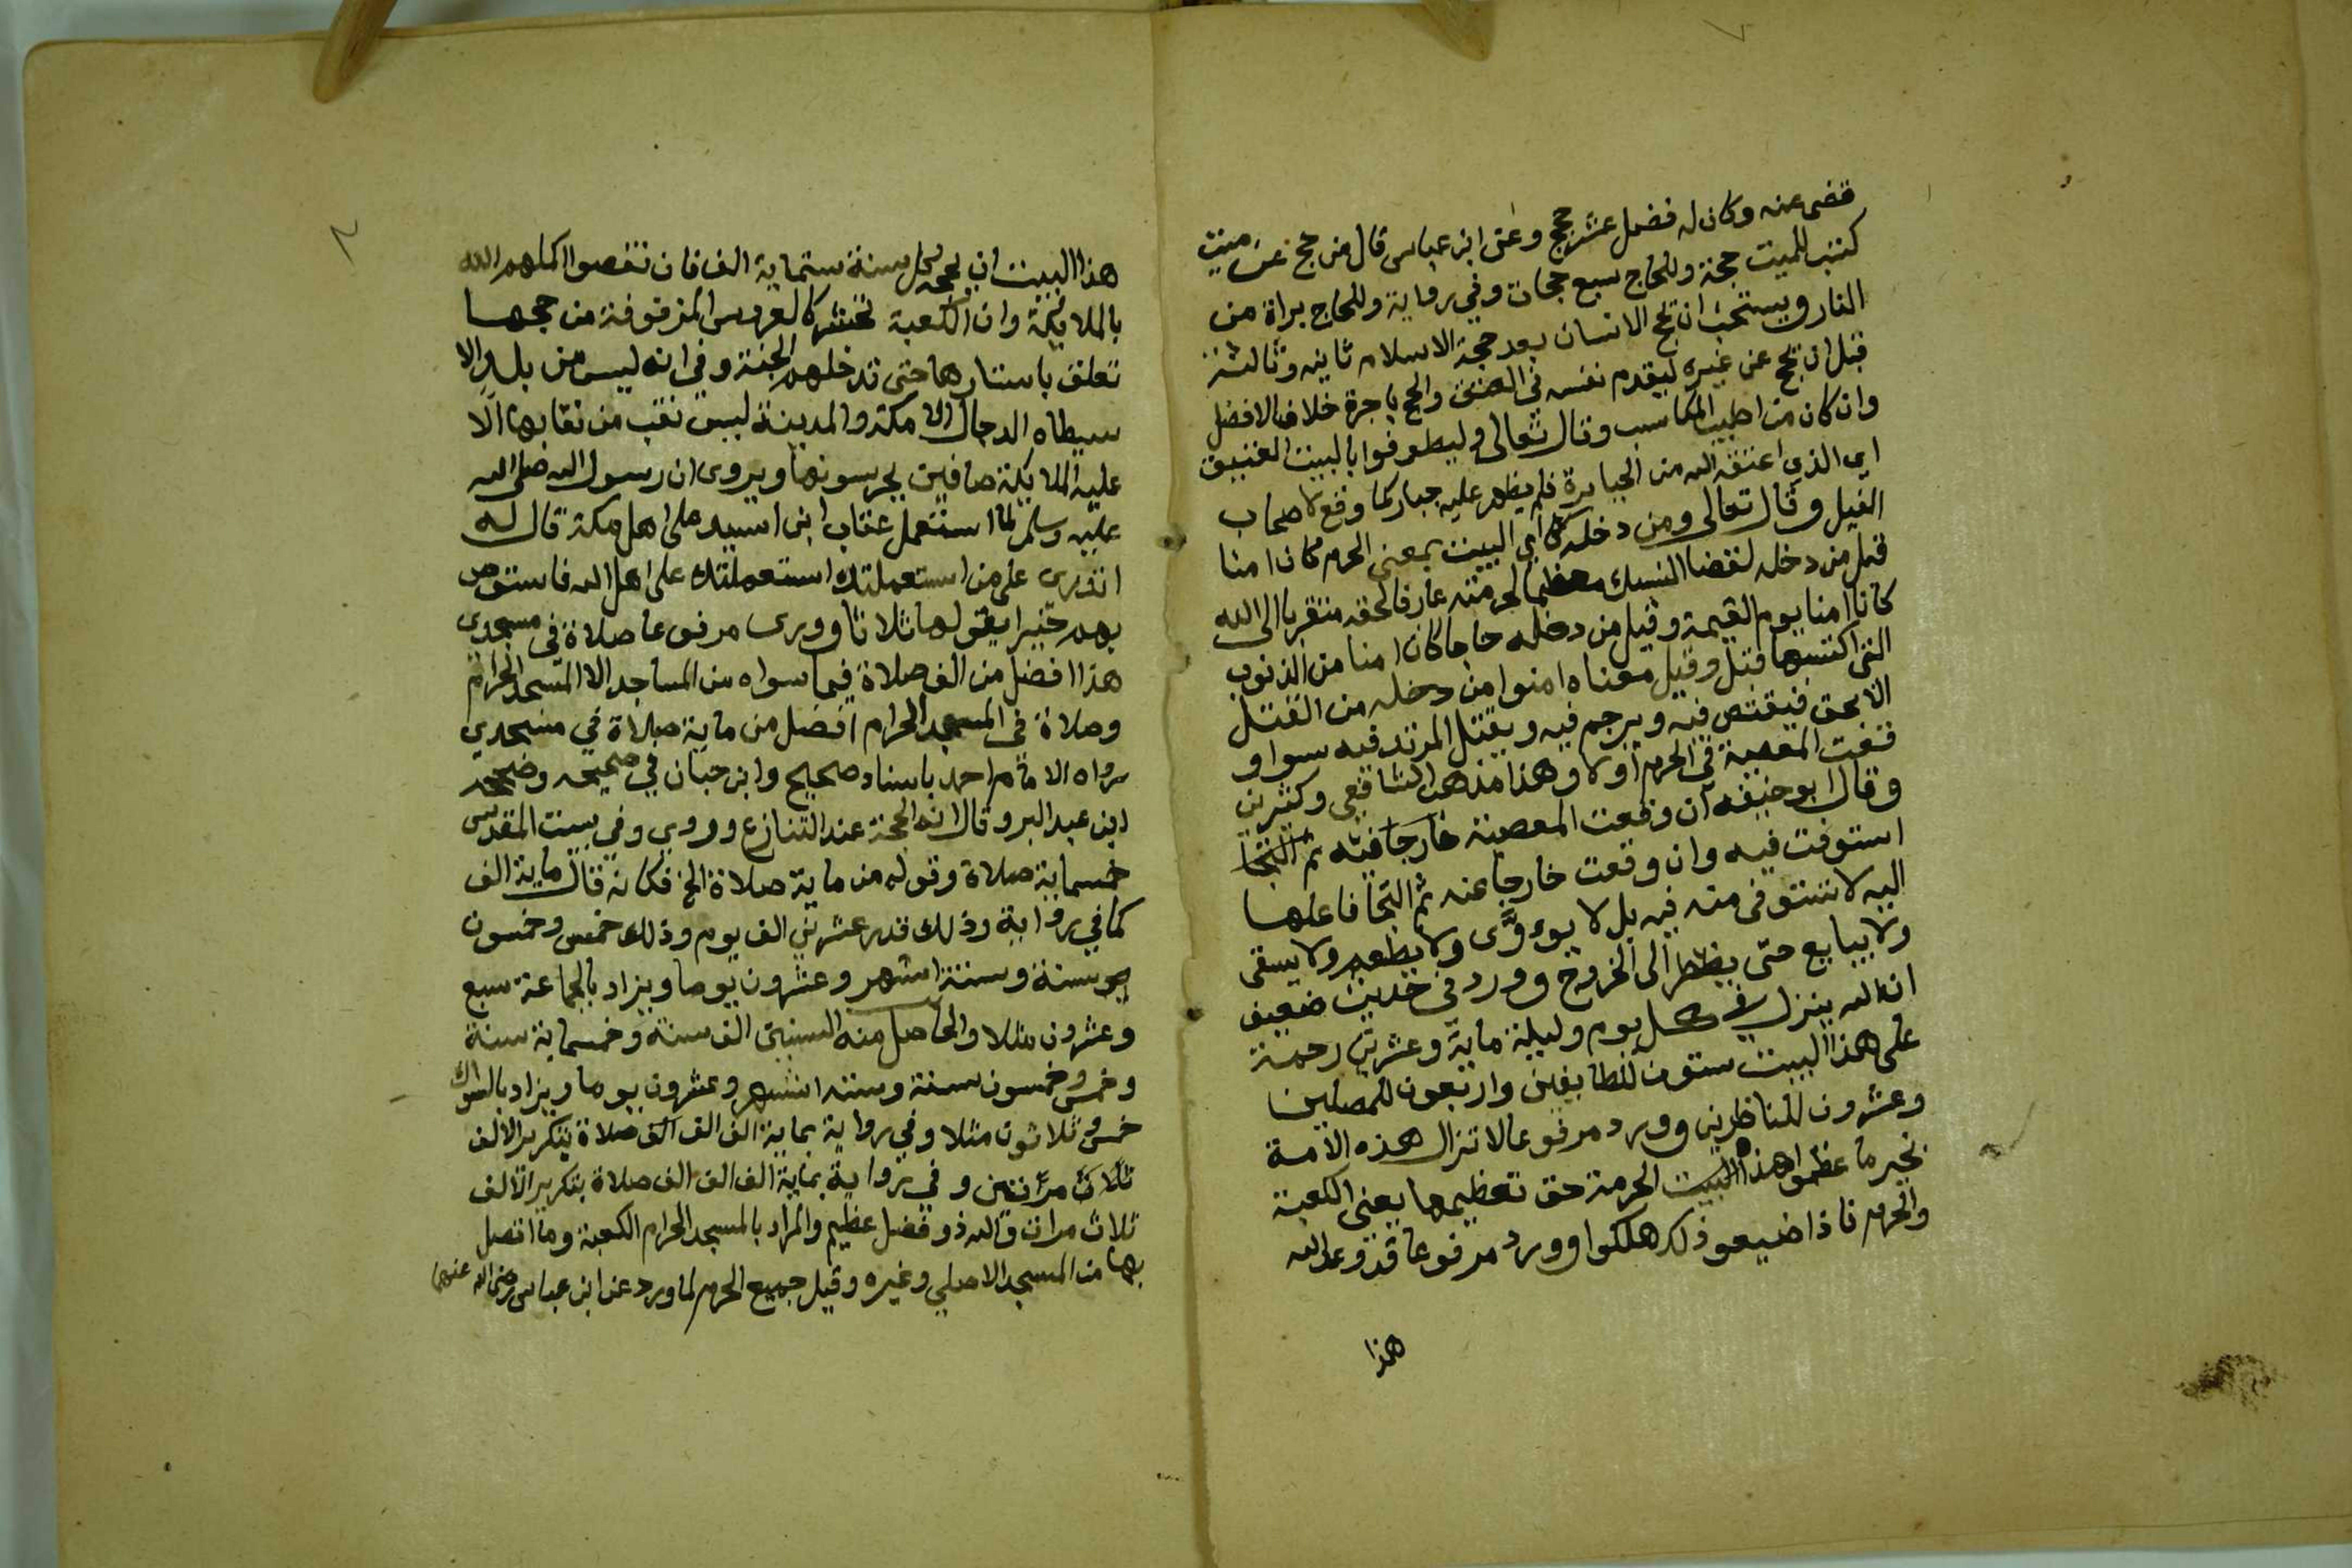 قضى عنه وكان له فضل عشر حجج وعن ابن عباس قال من حج عن ميت
كتب للميت حجة وللحاج سبع حجات وفي رواية وللحاج براة من
النار ويستحب ان يحج الانسان بعد حجة الاسلام ثانيه وثالثة
قبل ان يحج عن غيره ليقدم نفسه في والحج باجرة خلاف الافضل
وان كان من اطيب المكاسب وقال تعالى وليطوفوا بالبيت العتيق
اي الذي اعتقه الله من الجبابرة فلم يظهر عليه جبار كما وقع لاصحاب
الفيل وقال تعالى ومن دخله كان اي البيت بمعنى الحرم كان امنا
قيل من دخله لقضا النسك معظما لحرمته عارفا لحقه متقربا الى الله
كانا امنا يوم القيمة وقيل من دخله حاجا كان امنا من الذنوب
التي اكتسبها قبل وقيل معناه امنوا من دخله من القتل
الا بحق فيقتص فيه ويرجم فيه ويقتل المرتد فيه سوا و
قعت المعصية في الحرم او لا وهذا مذهب الشافعي وكثيرين
وقال ابو حنيفه ان وقعت المعصية خارجا فيه ثم التجا
استوفت فيه وان وقعت خارجا عنه ثم التجا فاعلها
اليه لا تستوفى منه فيه بل لا يووى ولا يطعم ولا يسقى
ولا يبايع حتى يظطر الى الخروج وورد في حديث ضعيف
ان الله ينزل في كل يوم وليلة ماية وعشرين رحمة
على هذا البيت ستون للطايفين واربعون للمصلين
وعشرون للناظرين وورد مرفوعا لا تزال هذه الامة
بخير ما عظموا هذا البيت الحرمة حق تعظيمها يعني الكعبة
والحرم فاذا ضيعو ذلك هلكوا وورد مرفوعا قد وعد الله
هذا
هذا البيت ان يحجه كل سنة ستماية الف فان نقصوا اكملهم الله
بالملايكة وان الكعبة تحشر كالعروس المزفوفة من حجها
تعلق باستارها حتى تدخلهم الجنة وفي انه ليس من بلد الا
سيطاه الدجال الا مكة والمدينة ليس نقب من نقابها الا
عليه الملايكة صافين يحرسونها ويروى ان رسول الله صلى الله
عليه وسلم لما استعمل عتاب ابن اسيد على اهل مكة قال له
اتدرى على من استعملتك استعملتك على اهل الله فاستوص
بهم خيرا يقولها ثلاثا وورى مرفوعا صلاة في مسجدي
هذا افضل من الف صلاة فيما سواه من المساجد الا المسجد الحرام
وصلاة في المسجد الحرام افضل من ماية صلاة في مسجدي
رواه الامام احمد باسناد صحيح وابن حبان في صحيحه وصححه
ابن عبد البر وقال انه الحجة عند التنازع وروي وفي بيت المقدس
خمسماية صلاة وقوله من ماية صلاة الخ فكانه قال ماية الف
كما في رواية وذلك قدر عشرين الف يوم وذلك خمس وخمسون
سنة وستة اشهر وعشرون يوما ويزاد بالجماعة سبع
وعشرون مثلا والحاصل منه السنين الف سنة وخمسماية سنة
وخمس وخمسون سنة وستة اشهر وعشرون يوما ويزاد بالسواك
خمس وثلاثون مثلا وفي رواية بماية الف الف الف صلاة بتكرير الالف
ثلاث مرتين وفي رواية بماية الف الف الف صلاة بتكرير الالف
ثلاث مرات والله ذو فضل عظيم والمراد بالمسجد الحرام الكعبة وما اتصل
بها من المسجد الاصلي وغيره وقيل جميع الحرم لما ورد عن ابن عباس رضي الله عنهما